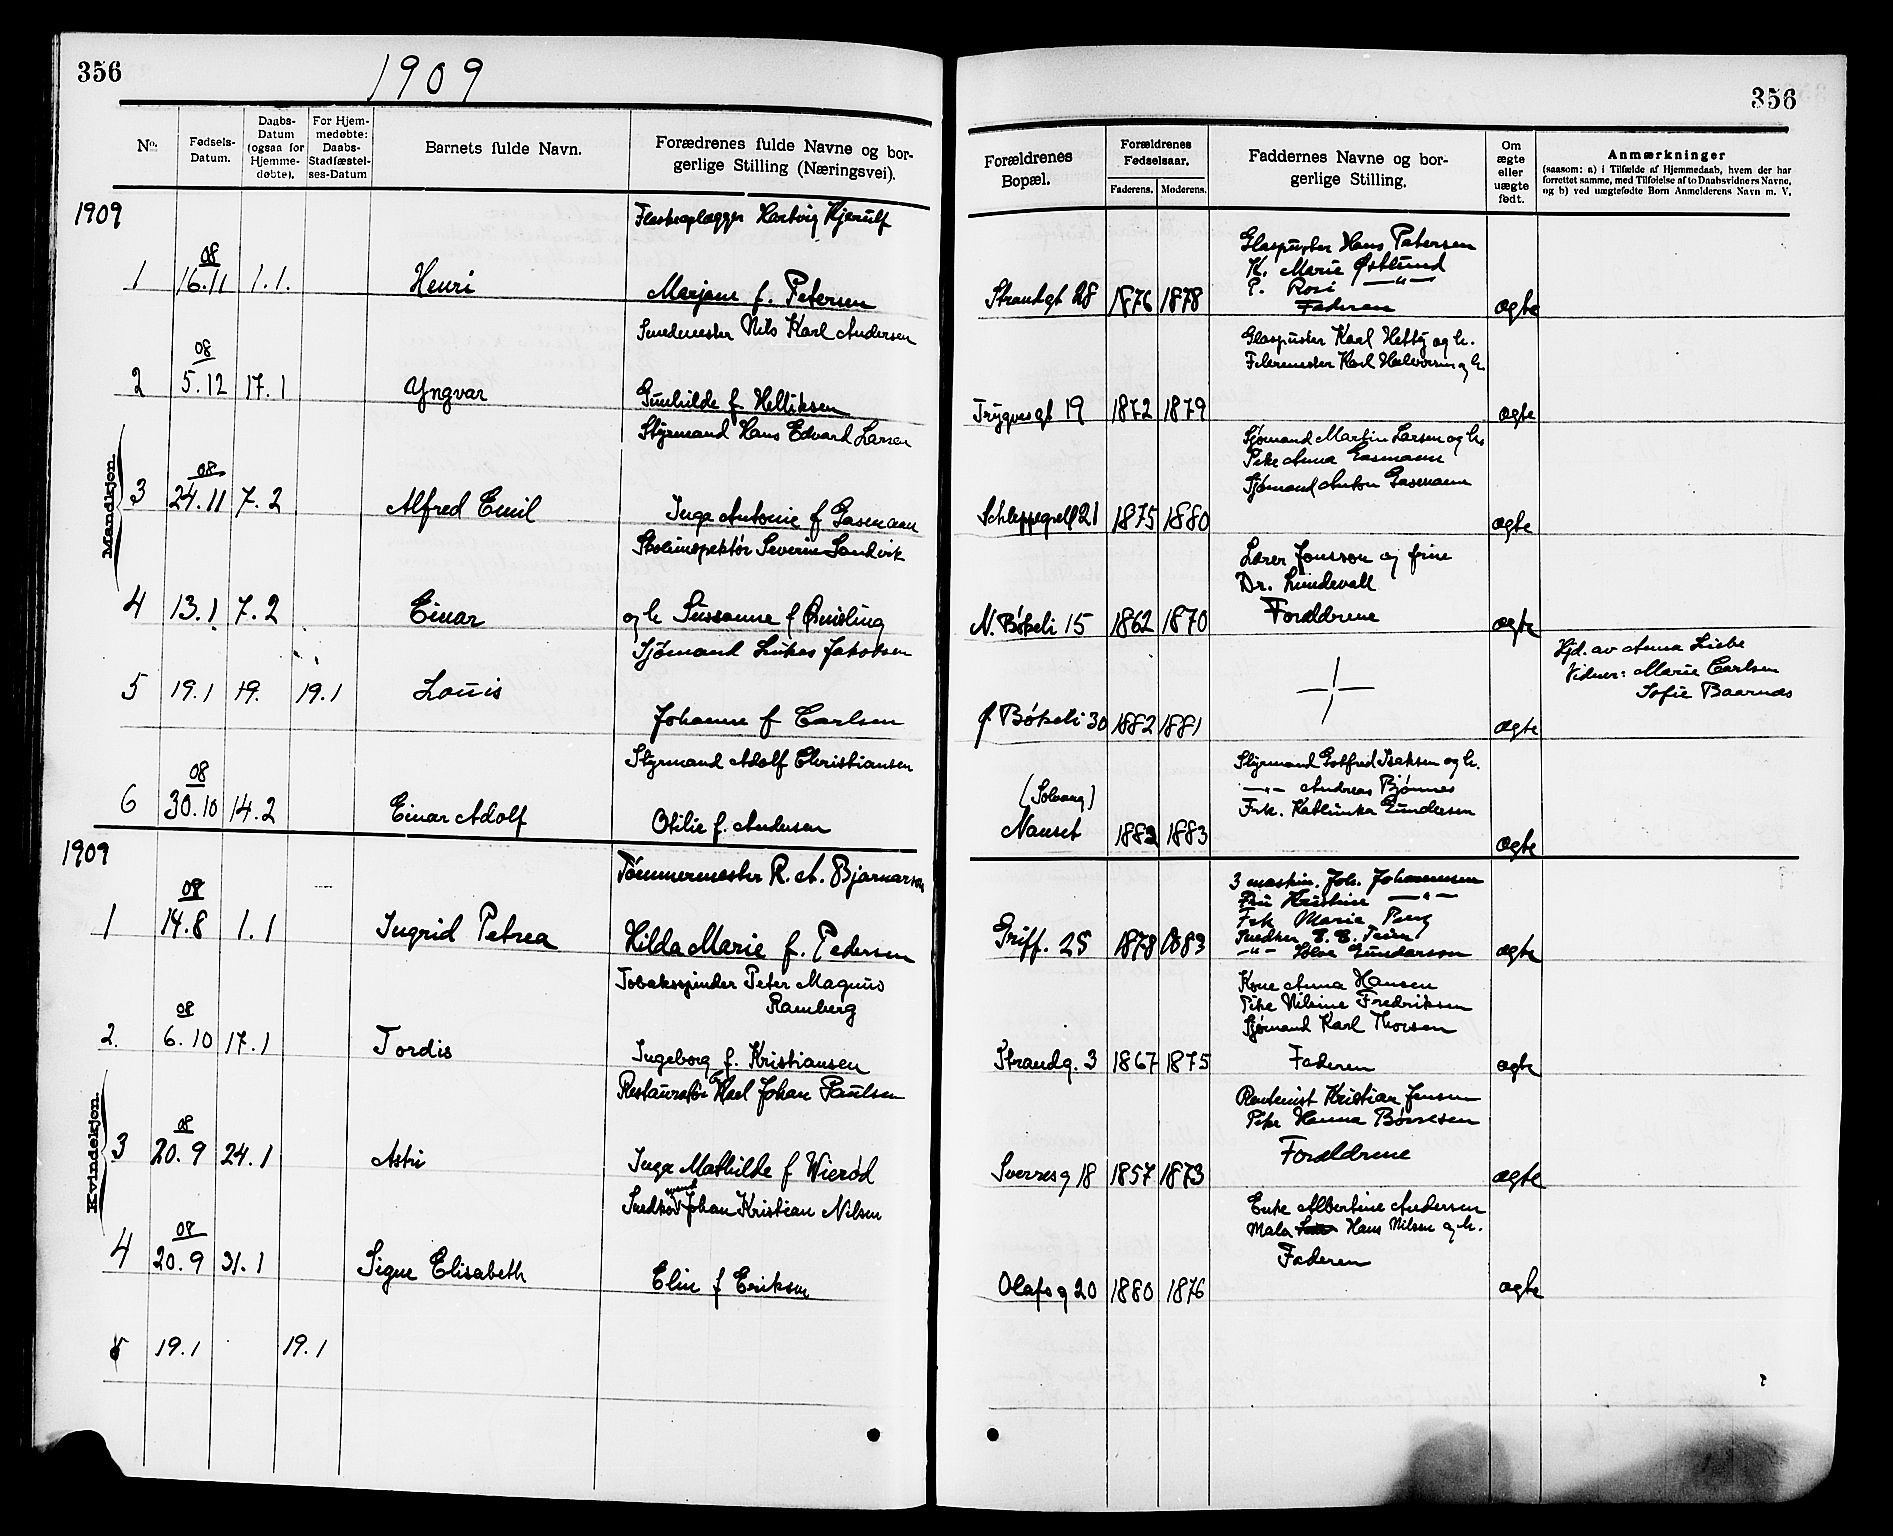 356
1909
No.
Fødsels-Datum.
Daabs-Datum (ogsaa for Hjemme-døbte).
For Hjem-medøbte: Daabs-Stadfæstel-ses-Datum
Barnets fulde Navn.
Forædrenes fulde Navne og bor-gerlige Stilling (Næringsvei).
1909
Mandkjøn.
Hartvig Kjerulf
1 08 16.11 1.1. Henri
Marjane f. Petersen
Smedmester Nils Karl Andersen
2 08 5.12 17.1 Yngvar
Gunhilde f Helliksen
Styrmand Hans Edvard Larsen
3 08 24.11 7.2 Alfred Emil
Inga Antonie f Gasmann
Skolinspektør Severin Sandvik
4 13.1 7.2 Einar
og h Sussanne f
Sjømand Lukas Jakobsen
5 19.1 19. 19.1 Louis
Johanne f Carlsen
Styrmand Adolf Christiansen
6 08 30.10 14.2 Einar Adolf
Otilie f. Andersen
1909
Kvindekjøn.
Tømmermester R. A. Bjarnarson
1 08 14.8 1.1 Ingrid Petrea
Hilda Marie f. Pedersen
Tobakspinder Peter Magnus
Ramberg
2. 08 6.10 17.1 Tordis
Ingeborg f. Kristiansen
Restauratør Karl Johan Paulsen
3 08 20.9 24.1 Astri
Inga Mathilde f Wierød
Johan Kristian Nilsen
4 08 20.9 31.1 Signe Elisabeth
Elin f Eriksen
5 19.1 19.1
356
Forældrenes Bopæl.
Forældrenes Fødselsaar.
Faderens. Moderens.
Faddernes Navne og bor-gerlige Stilling.
Om ægte eller uægte født.
Anmærkninger
(saasom: a) i Tilfælde af Hjemmedaab, hvem der har
forrettet samme, med Tilføielse af to Daabsvidners Navne,
og b) ved uægtefødte Børn Anmelderens Navn m. V.
Glaspuster Hans Petersen
K. Marie Østlund
P. Rosi —"—
Strandgt 28 1876 1878 Faderen ægte
Glaspuster Karl Hetty og h.
Karl Halvorsen og h
Trygvesgt 19 1872 1879 ægte
Sjømand Martin Larsen og h.
Pike Anna Gasmann
Sjømand Anton Gasmann
Schleppegrell 21 1875 1880 ægte
Lærer Jonsson og frue
Dr. Lundevall
N. Bøkeli 15 1862 1870 Forældrene ægte
Hjd. av Anna Liebe
Vidner: Marie Carlsen
Sofie Baarnæs
Ø. Bøkeli 30 1882 1881 ægte
Styrmand Gotfred Isaksen og h.
—"— Andreas Bjønnes
Frk. Kathinka Gundersen
(Solvang)
Nanset 1882 1883 ægte
3 maskin. Joh. Johannesen
Fru Kristine —"—
Frk Marie
—"— Gundersen
Griff. 25 1878 1883 ægte
Kone Anna Hansen
Pike Nilsine Fredriksen
Sjømand Karl Thorsen
Strandg. 3 1867 1875 Faderen ægte
Rentenist Kristian Jensen
Pike Hanna Børresen
Sverresg 18 1857 1873 Forældrene ægte
Enke Albertine Andersen
Maler Hans Nilsen og h.
Faderen
Olafsg 20 1880 1876 ægte